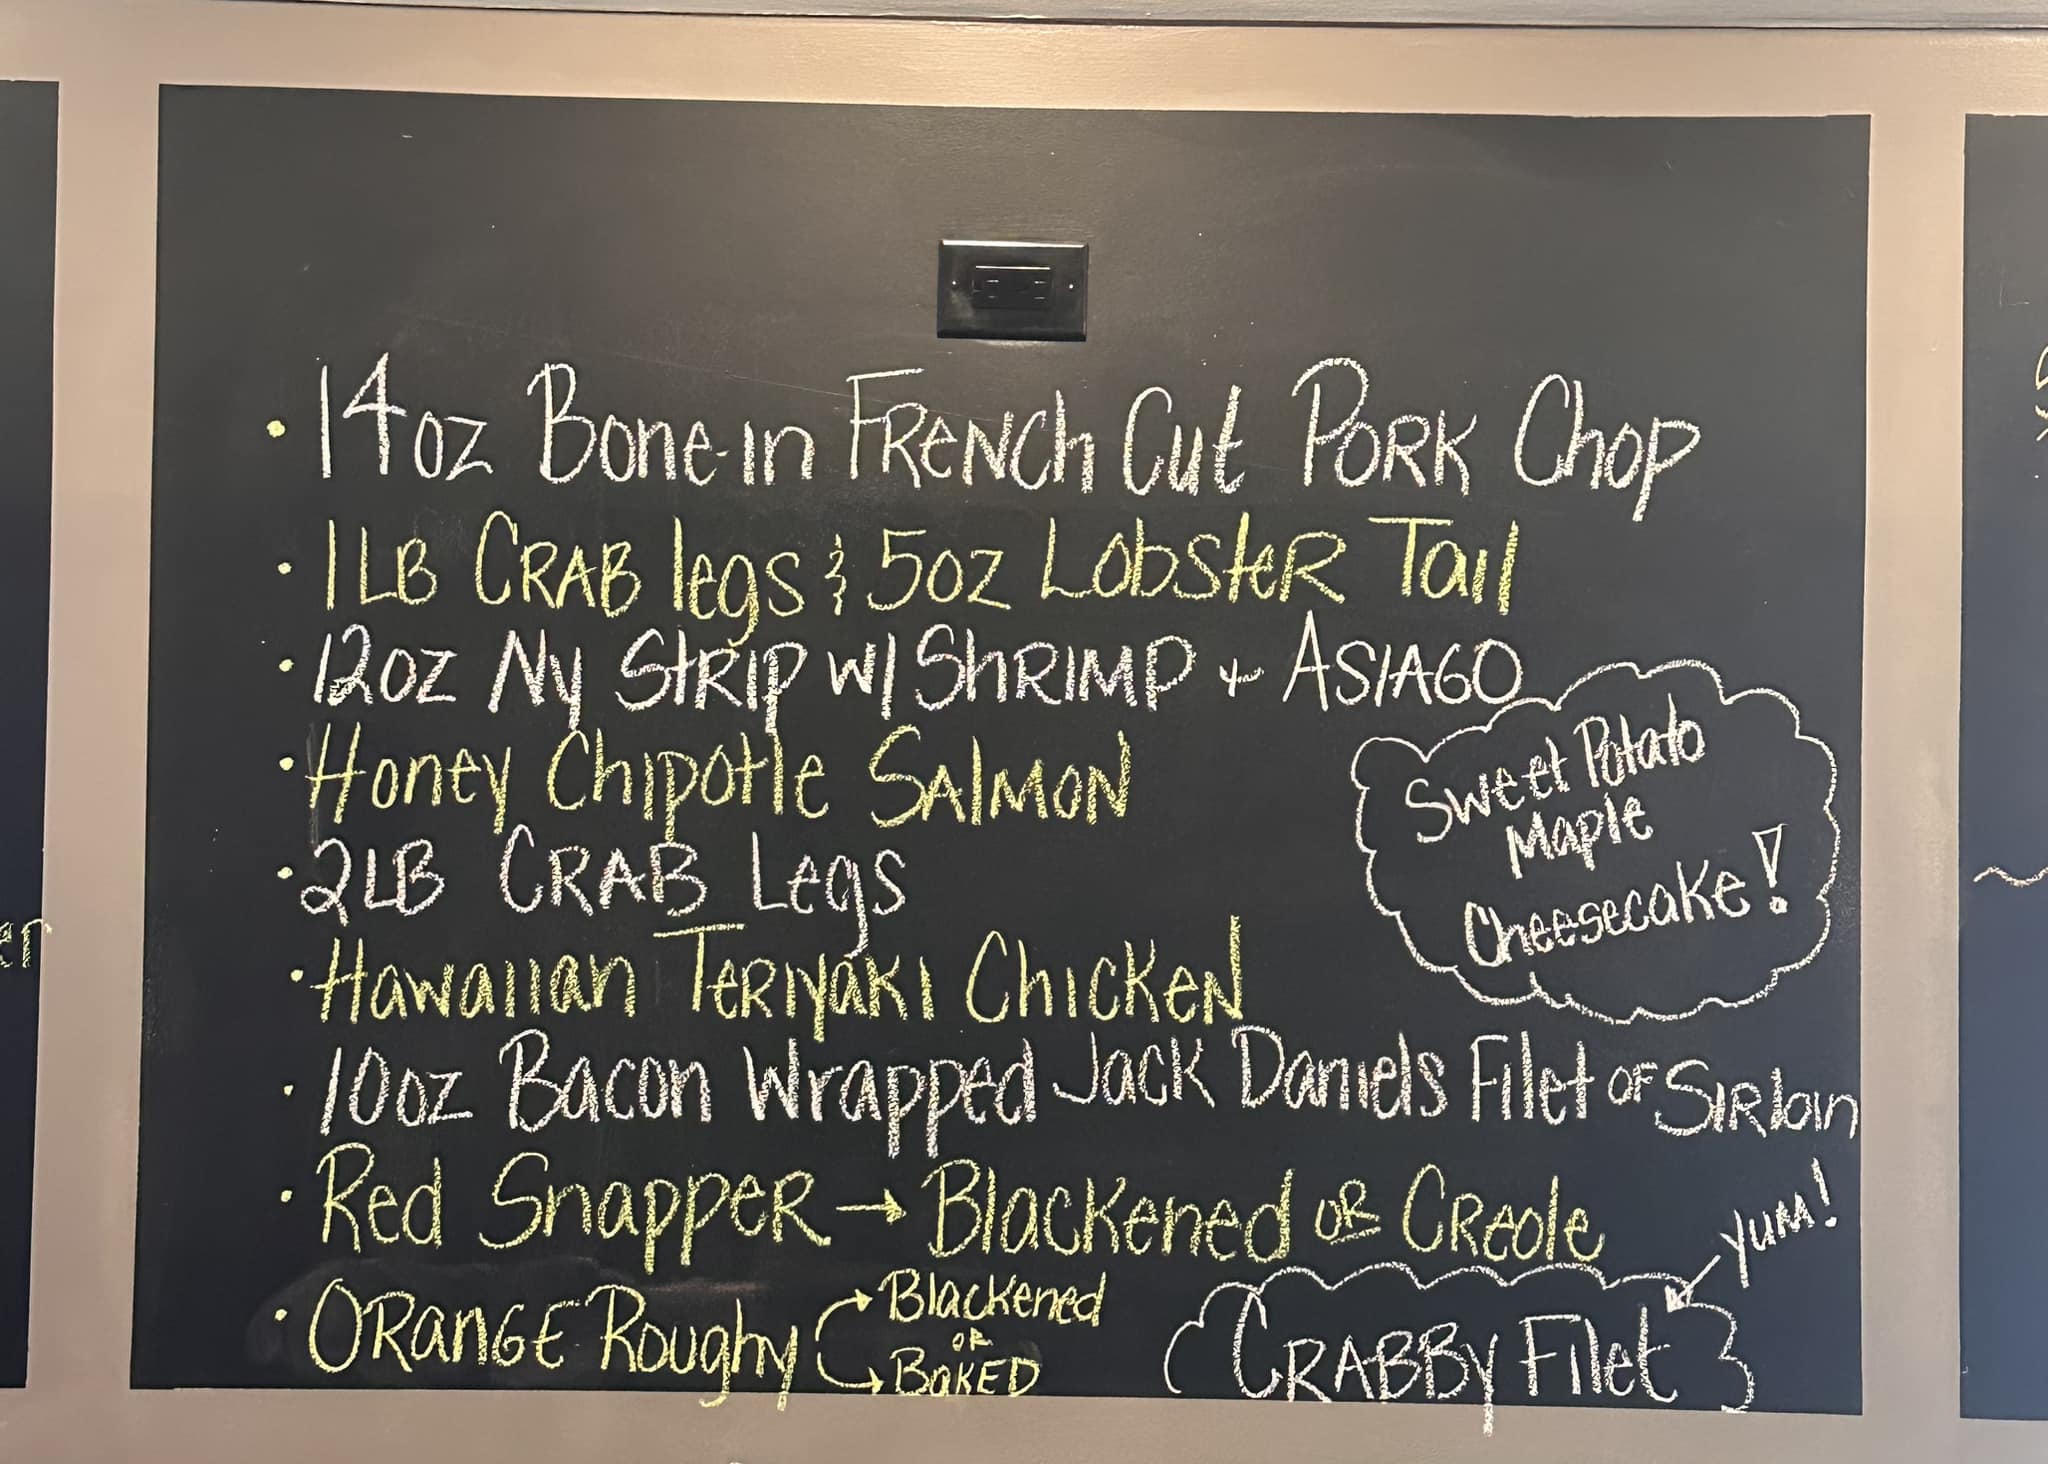 • 14oz Bone-in French Cut Pork Chop
• 1LB Crab legs & 5oz Lobster Tail
• 12oz Ny Strip w/ Shrimp + Asiago
• Honey Chipotle Salmon
• 2LB Crab Legs
Sweet Potato
Maple
Cheesecake!
• Hawaiian Teriyaki Chicken
• 10oz Bacon Wrapped Jack Daniels Filet of Sirloin
• Red Snapper → Blackened or Creole
• Orange Roughy
Blackened
or
Baked
Yum!
Crabby Filet